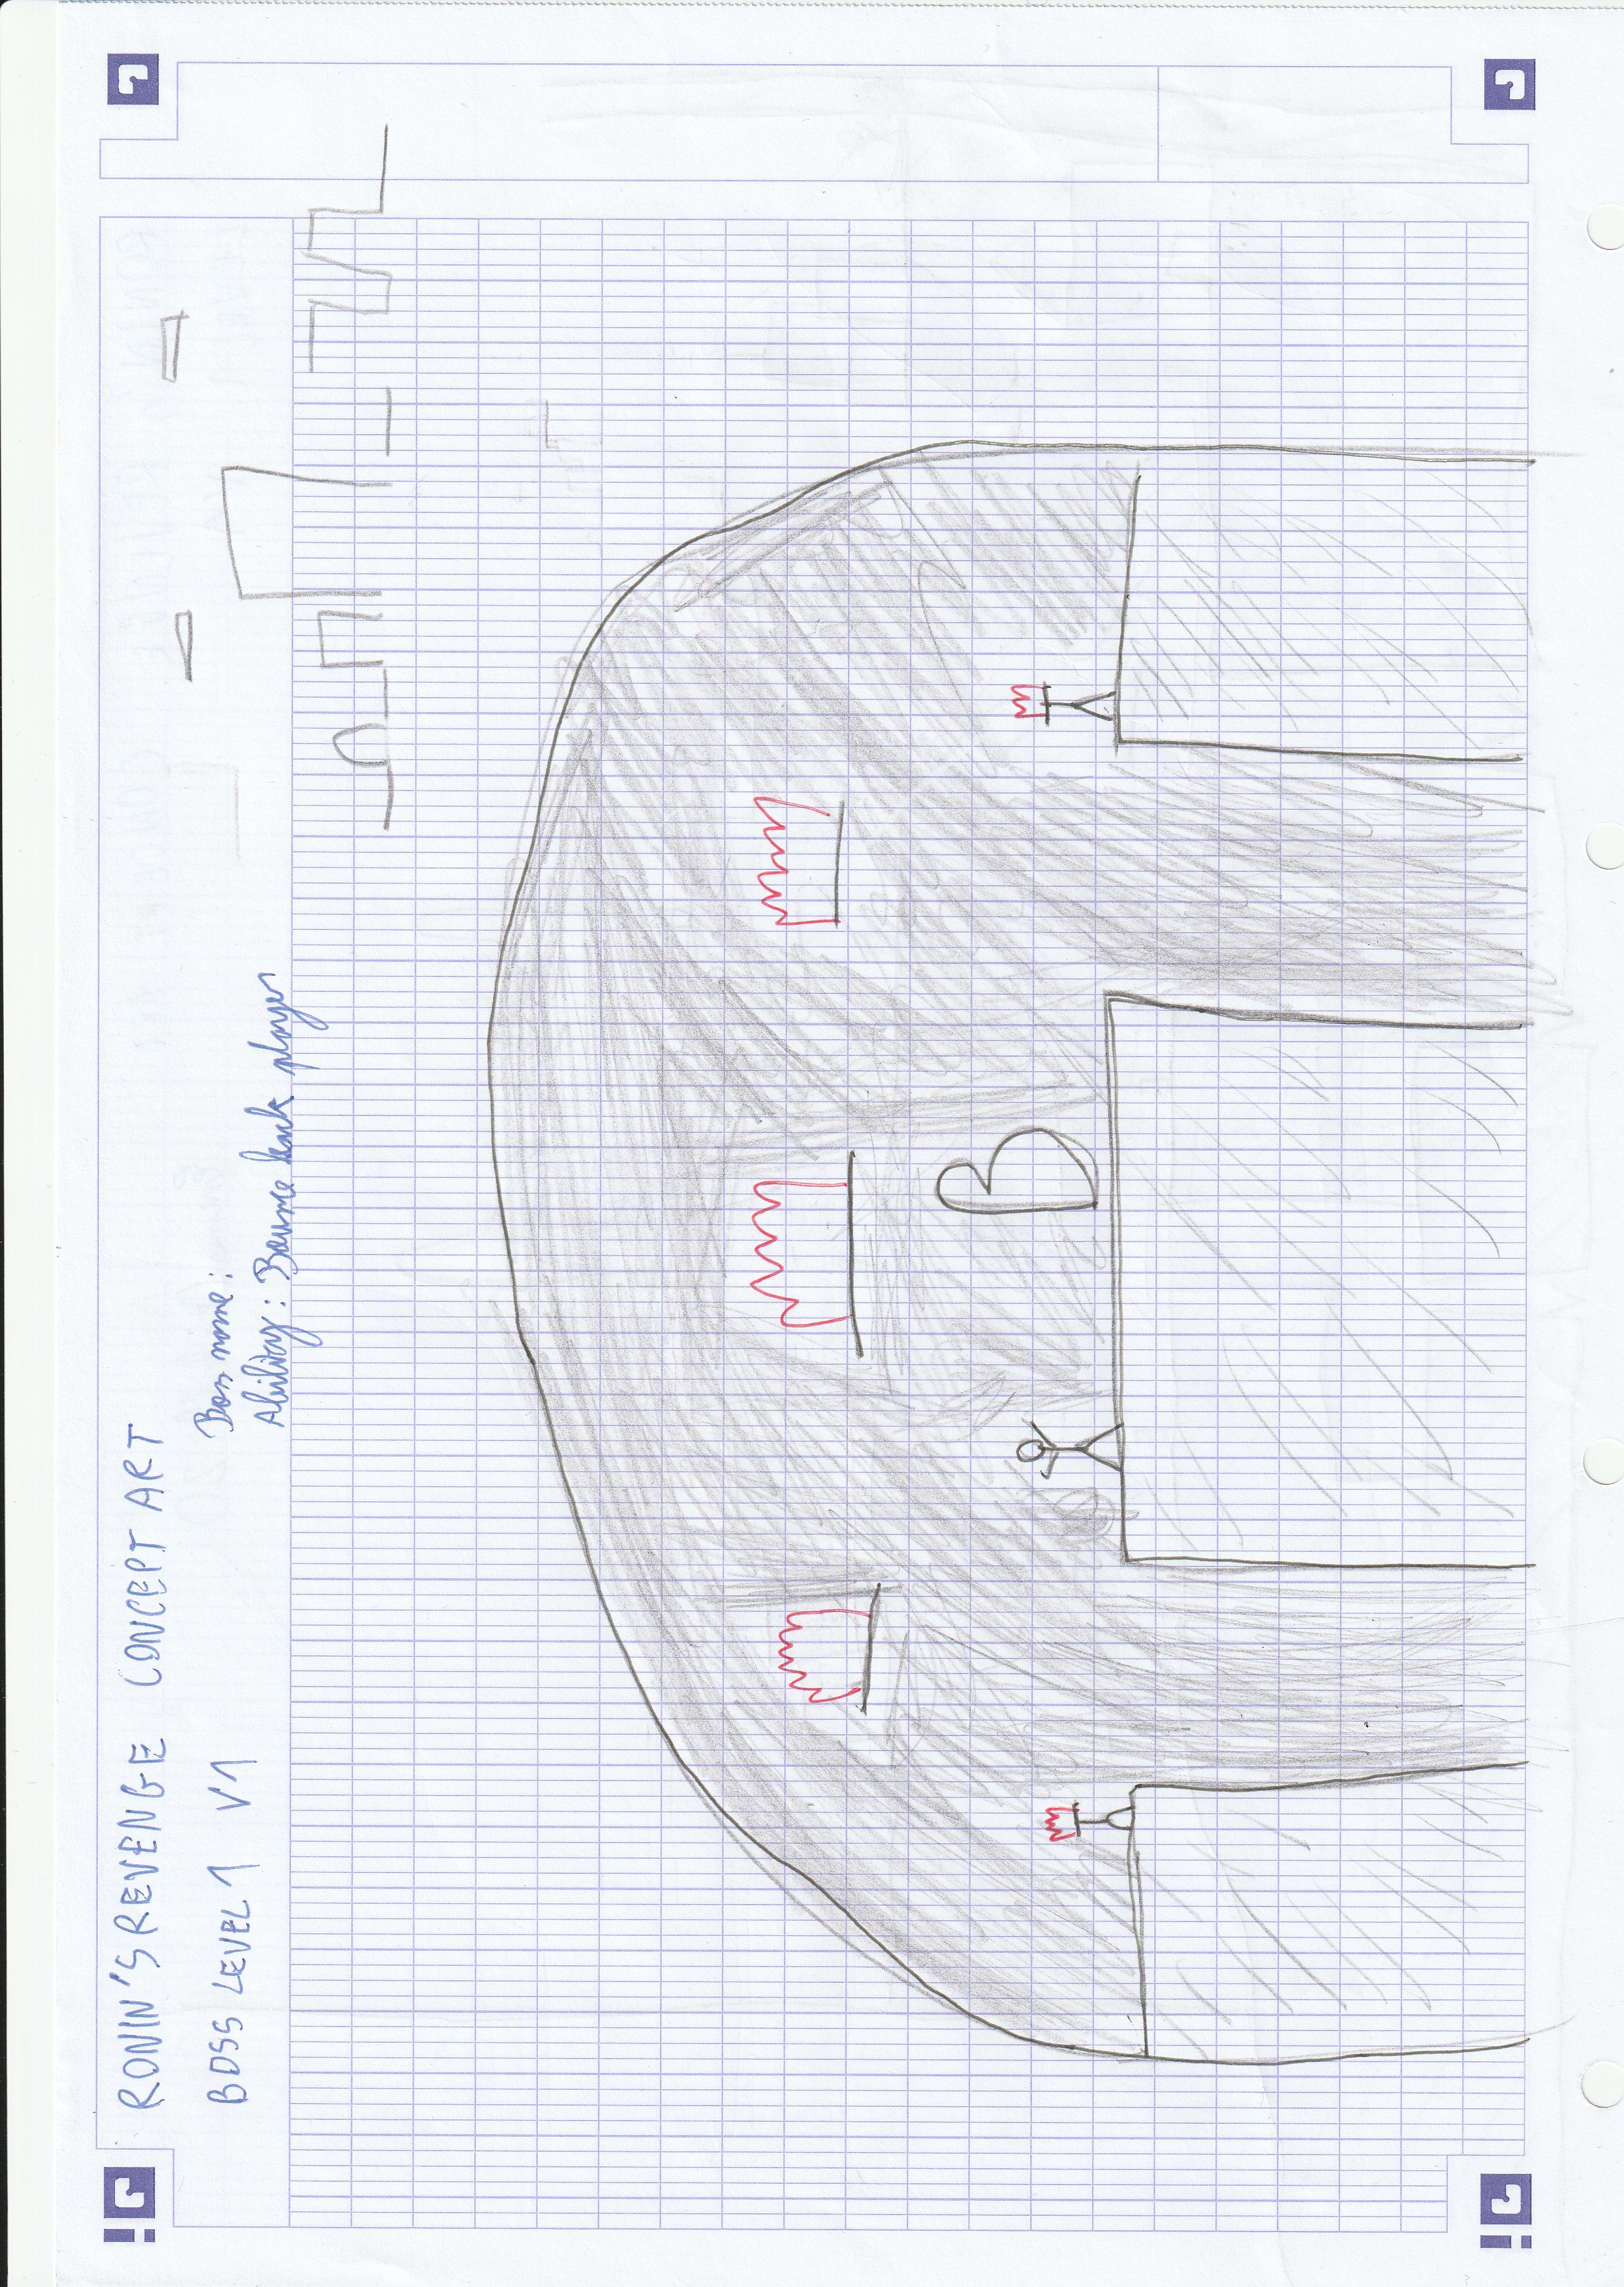 RONIN'S REVENGE CONCEPT ART
BOSS LEVEL 1 V1
Boss name:
Ability: Bounce back player
B